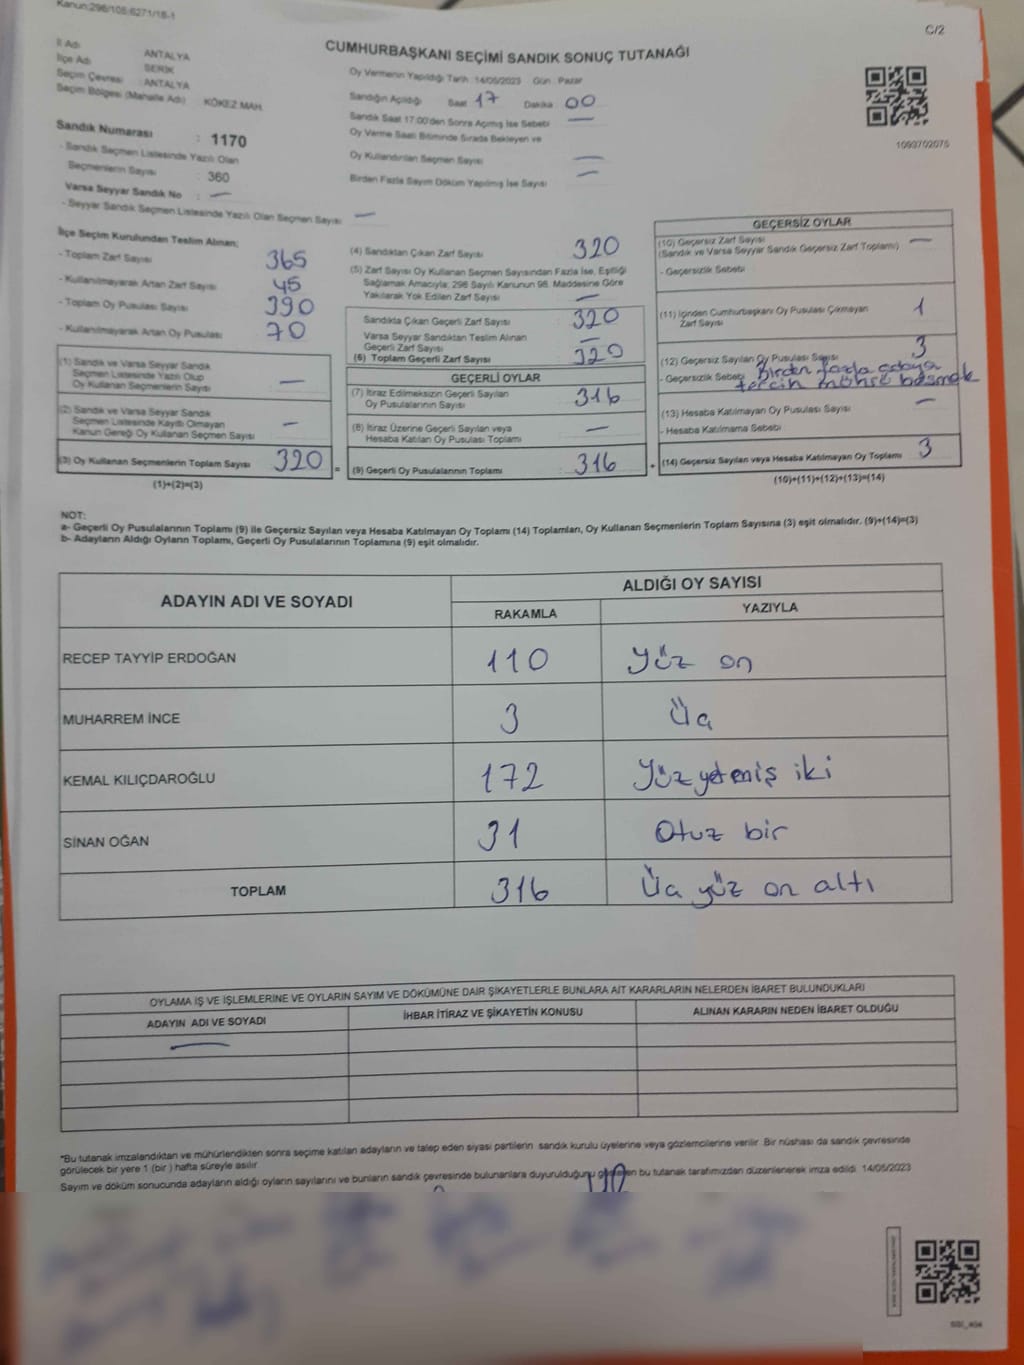 Kanun:298/105;6271/18-1
C/2
CUMHURBAŞKANI SEÇİMİ SANDIK SONUÇ TUTANAĞI
İl Adı ANTALYA
İlçe Adı SERİK
Seçim Çevresi : ANTALYA
Seçim Bölgesi (Mahalle Adı) KÖKEZ MAH.
Sandık Numarası : 1170
- Sandık Seçmen Listesinde Yazılı Olan
Seçmenlerin Sayısı : 360
Varsa Seyyar Sandık No : —
- Seyyar Sandık Seçmen Listesinde Yazılı Olan Seçmen Sayısı —
Oy Vermenin Yapıldığı Tarih : 14/05/2023 Gün : Pazar
Sandığın Açıldığı Saat 17 Dakika 00
Sandık Saat 17:00'den Sonra Açılmış İse Sebebi —
Oy Verme Saati Bitiminde Sırada Bekleyen ve
Oy Kullandırılan Seçmen Sayısı —
Birden Fazla Sayım Döküm Yapılmış İse Sayısı —
1093702075
İlçe Seçim Kurulundan Teslim Alınan;
- Toplam Zarf Sayısı 365
- Kullanılmayarak Artan Zarf Sayısı 45
- Toplam Oy Pusulası Sayısı 390
- Kullanılmayarak Artan Oy Pusulası 70
(1) Sandık ve Varsa Seyyar Sandık
Seçmen Listesinde Yazılı Olup
Oy Kullanan Seçmenlerin Sayısı —
(2) Sandık ve Varsa Seyyar Sandık
Seçmen Listesinde Kayıtlı Olmayan
Kanun Gereği Oy Kullanan Seçmen Sayısı —
(3) Oy Kullanan Seçmenlerin Toplam Sayısı 320 =
(1)+(2)=(3)
(4) Sandıktan Çıkan Zarf Sayısı 320
(5) Zarf Sayısı Oy Kullanan Seçmen Sayısından Fazla İse, Eşitliği
Sağlamak Amacıyla; 298 Sayılı Kanunun 98. Maddesine Göre
Yakılarak Yok Edilen Zarf Sayısı —
Sandıkta Çıkan Geçerli Zarf Sayısı 320
Varsa Seyyar Sandıktan Teslim Alınan
Geçerli Zarf Sayısı —
(6) Toplam Geçerli Zarf Sayısı 320
GEÇERLİ OYLAR
(7) İtiraz Edilmeksizin Geçerli Sayılan
Oy Pusulalarının Sayısı 316
(8) İtiraz Üzerine Geçerli Sayılan veya
Hesaba Katılan Oy Pusulası Toplamı —
(9) Geçerli Oy Pusulalarının Toplamı 316 +
GEÇERSİZ OYLAR
(10) Geçersiz Zarf Sayısı —
(Sandık ve Varsa Seyyar Sandık Geçersiz Zarf Toplamı)
- Geçersizlik Sebebi
(11) İçinden Cumhurbaşkanı Oy Pusulası Çıkmayan
Zarf Sayısı 1
(12) Geçersiz Sayılan Oy Pusulası Sayısı 3
- Geçersizlik Sebebi Birden fazla adaya
tercih mührü basmak
(13) Hesaba Katılmayan Oy Pusulası Sayısı —
- Hesaba Katılmama Sebebi
(14) Geçersiz Sayılan veya Hesaba Katılmayan Oy Toplamı 3
(10)+(11)+(12)+(13)=(14)
NOT:
a- Geçerli Oy Pusulalarının Toplamı (9) ile Geçersiz Sayılan veya Hesaba Katılmayan Oy Toplamı (14) Toplamları, Oy Kullanan Seçmenlerin Toplam Sayısına (3) eşit olmalıdır. (9)+(14)=(3)
b- Adayların Aldığı Oyların Toplamı, Geçerli Oy Pusulalarının Toplamına (9) eşit olmalıdır.
ADAYIN ADI VE SOYADI ALDIĞI OY SAYISI
RAKAMLA YAZIYLA
RECEP TAYYİP ERDOĞAN 110 Yüz on
MUHARREM İNCE 3 Üç
KEMAL KILIÇDAROĞLU 172 Yüz yetmiş iki
SİNAN OĞAN 31 Otuz bir
TOPLAM 316 Üç yüz on altı
OYLAMA İŞ VE İŞLEMLERİNE VE OYLARIN SAYIM VE DÖKÜMÜNE DAİR ŞİKAYETLERLE BUNLARA AİT KARARLARIN NELERDEN İBARET BULUNDUKLARI
ADAYIN ADI VE SOYADI İHBAR İTİRAZ VE ŞİKAYETİN KONUSU ALINAN KARARIN NEDEN İBARET OLDUĞU
—
*Bu tutanak imzalandıktan ve mühürlendikten sonra seçime katılan adayların ve talep eden siyasi partilerin sandık kurulu üyelerine veya gözlemcilerine verilir. Bir nüshası da sandık çevresinde
görülecek bir yere 1 (bir) hafta süreyle asılır
Sayım ve döküm sonucunda adayların aldığı oyların sayılarını ve bunların sandık çevresinde bulunanlara duyurulduğunu gösteren bu tutanak tarafımızdan düzenlenerek imza edildi. 14/05/2023